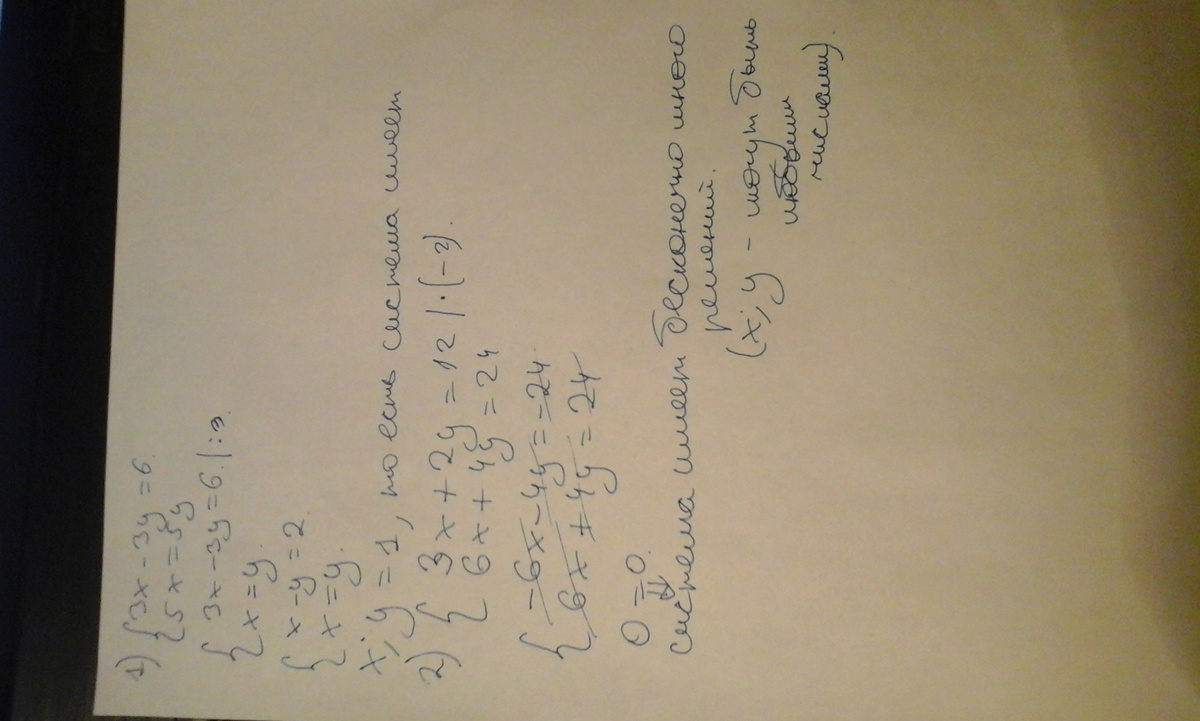 1) { 3x - 3y = 6.
5x = 5y
{ 3x - 3y = 6. | :3
x = y.
{ x - y = 2
x = y.
x; y = 1, то есть система имеет
2) { 3x + 2y = 12 | · (-2).
6x + 4y = 24
{ -6x - 4y = -24
6x + 4y = 24
0 = 0.
⇓
система имеет бесконечно много
решений.
(x; y - могут быть
любыми
числами).